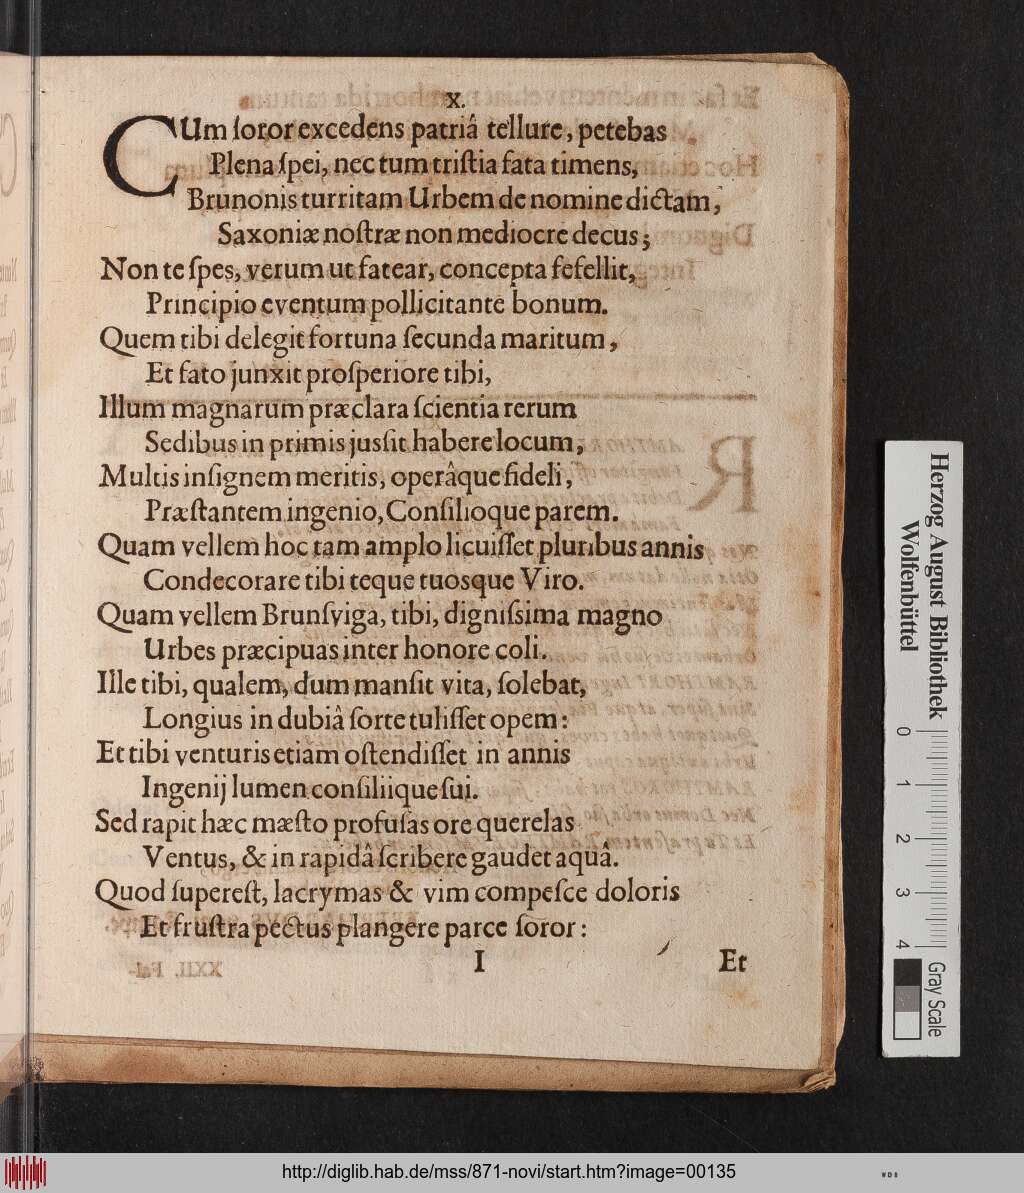 X.
CUm ſoror excedens patriâ tellure, petebas
Plena ſpei, nec tum triſtia fata timens,
Brunonis turritam Urbem de nomine dictam,
Saxoniæ noſtræ non mediocre decus;
Non te ſpes, verum ut fatear, concepta fefellit,
Principio eventum pollicitante bonum.
Quem tibi delegit fortuna ſecunda maritum,
Et fato junxit proſperiore tibi,
Illum magnarum præclara ſcientia rerum
Sedibus in primis jusſit habere locum,
Multis inſignem meritis, operâque fideli,
Præſtantem ingenio, Conſilioque parem.
Quam vellem hoc tam amplo licuiſſet pluribus annis
Condecorare tibi teque tuosque Viro.
Quam vellem Brunſviga, tibi, digniſsima magno
Urbes præcipuas inter honore coli.
Ille tibi, qualem, dum manſit vita, ſolebat,
Longius in dubiâ ſorte tuliſſet opem:
Et tibi venturis etiam oſtendiſſet in annis
Ingenij lumen conſiliique ſui.
Sed rapit hæc mæſto profuſas ore querelas
Ventus, & in rapidâ ſcribere gaudet aquâ.
Quod ſupereſt, lacrymas & vim compeſce doloris
Et fruſtra pectus plangere parce ſoror:
I
Et
Herzog August Bibliothek
Wolfenbüttel
0 1 2 3 4
Gray Scale
http://diglib.hab.de/mss/871-novi/start.htm?image=00135